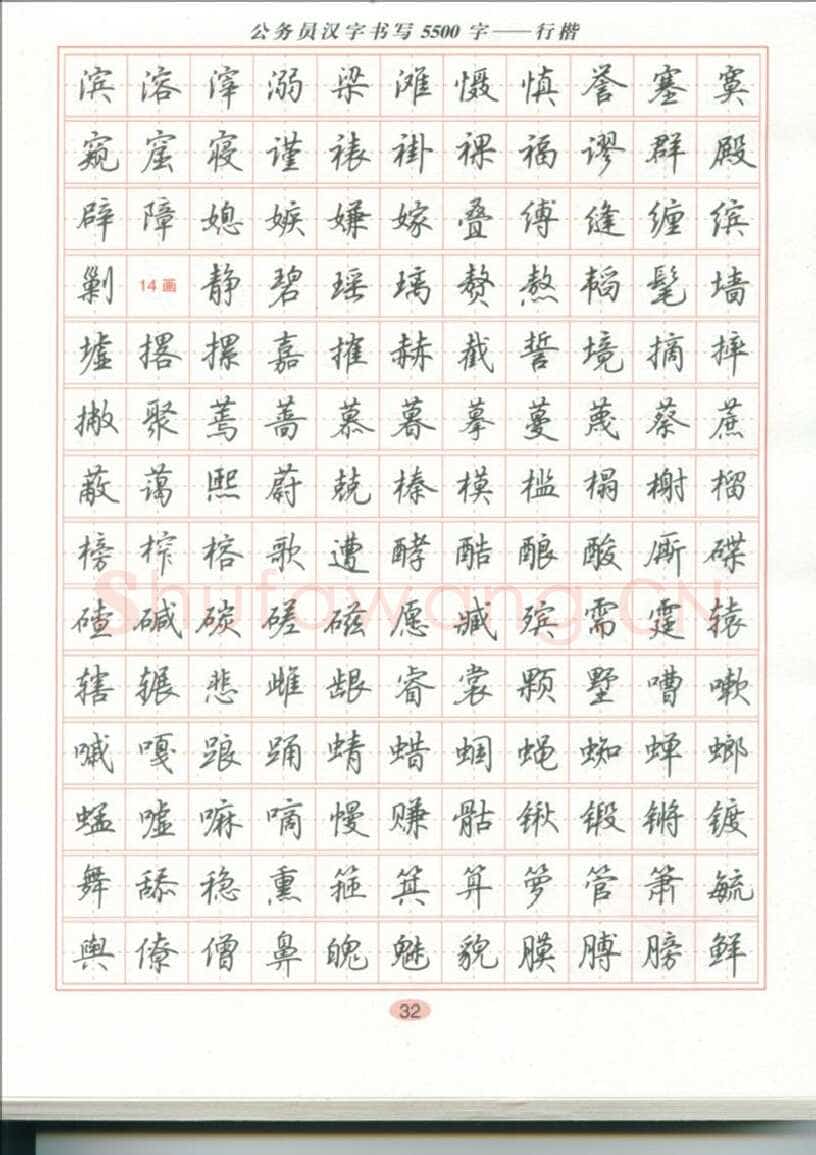 公务员汉字书写5500字——行楷
滨 溶 滓 溺 粱 滩 慑 慎 誉 塞 寞
窥 窟 寝 谨 裱 褂 裸 福 谬 群 殿
辟 障 媳 嫉 嫌 嫁 叠 缚 缝 缠 缤
剿 14画 静 碧 瑶 璃 赘 熬 韬 髦 墙
墟 撂 摞 嘉 摧 赫 截 誓 境 摘 摔
撇 聚 蔫 蔷 慕 暮 摹 蔓 蔑 蔡 蔗
蔽 蔼 熙 蔚 兢 榛 模 槛 榻 榭 榴
榜 榨 榕 歌 遭 酵 酷 酿 酸 厮 碟
碴 碱 碳 磋 磁 愿 臧 殡 需 霆 辕
辖 辗 悲 雌 龈 睿 裳 颗 墅 嘈 嗽
嘁 嘎 踉 踊 蜻 蜡 蝈 蝇 蜘 蝉 螂
蜢 嘘 嘛 嘀 慢 赚 骷 锹 锻 锵 镀
舞 舔 稳 熏 箍 箕 算 箩 管 箫 毓
舆 僚 僧 鼻 魄 魅 貌 膜 膊 膀 鲜
32
Shufawang.CN